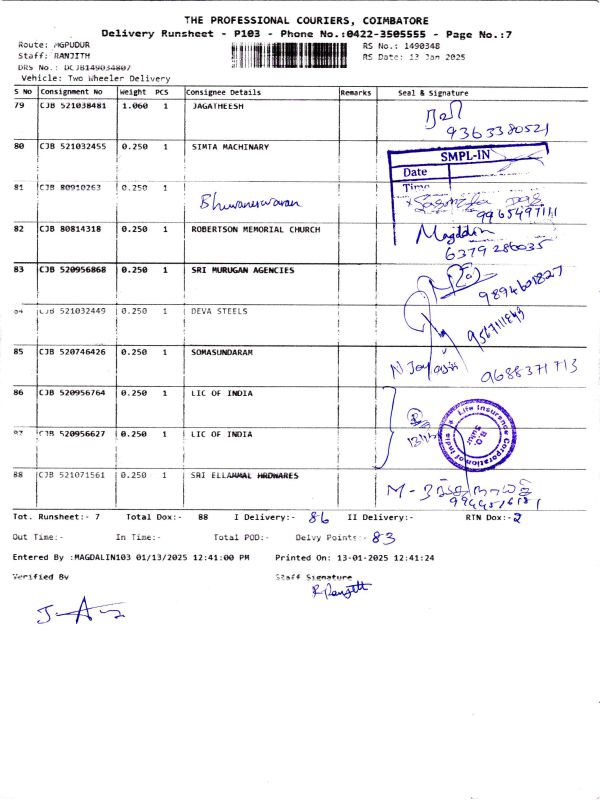 THE PROFESSIONAL COURIERS, COIMBATORE
Delivery Runsheet - P103 - Phone No.:0422-3505555 - Page No.:7
Route: MGPUDUR RS No.: 1490348
Staff: RANJITH RS Date: 13 Jan 2025
DRS No.: DCJB149034807
Vehicle: Two Wheeler Delivery
S No Consignment No Weight PCS Consignee Details Remarks Seal & Signature
79 CJB 521038481 1.060 1 JAGATHEESH
9363380521
80 CJB 521032455 0.250 1 SIMTA MACHINARY
SMPL-IN
Date
Time
81 CJB 80910263 0.250 1 Bhuvaneswaran
9965497111
82 CJB 80814318 0.250 1 ROBERTSON MEMORIAL CHURCH Magdalin
6379286035
83 CJB 520956868 0.250 1 SRI MURUGAN AGENCIES
9894601827
84 CJB 521032449 0.250 1 DEVA STEELS
85 CJB 520746426 0.250 1 SOMASUNDARAM
9688371713
86 CJB 520956764 0.250 1 LIC OF INDIA
Life Insurance Corporation of India
87 CJB 520956627 0.250 1 LIC OF INDIA
88 CJB 521071561 0.250 1 SRI ELLAMMAL HRDWARES
Tot. Runsheet:- 7 Total Dox:- 88 I Delivery:- 86 II Delivery:- RTN Dox:-2
Out Time:- In Time:- Total POD:- Delvy Points:- 83
Entered By :MAGDALIN103 01/13/2025 12:41:00 PM Printed On: 13-01-2025 12:41:24
Verified By Staff Signature